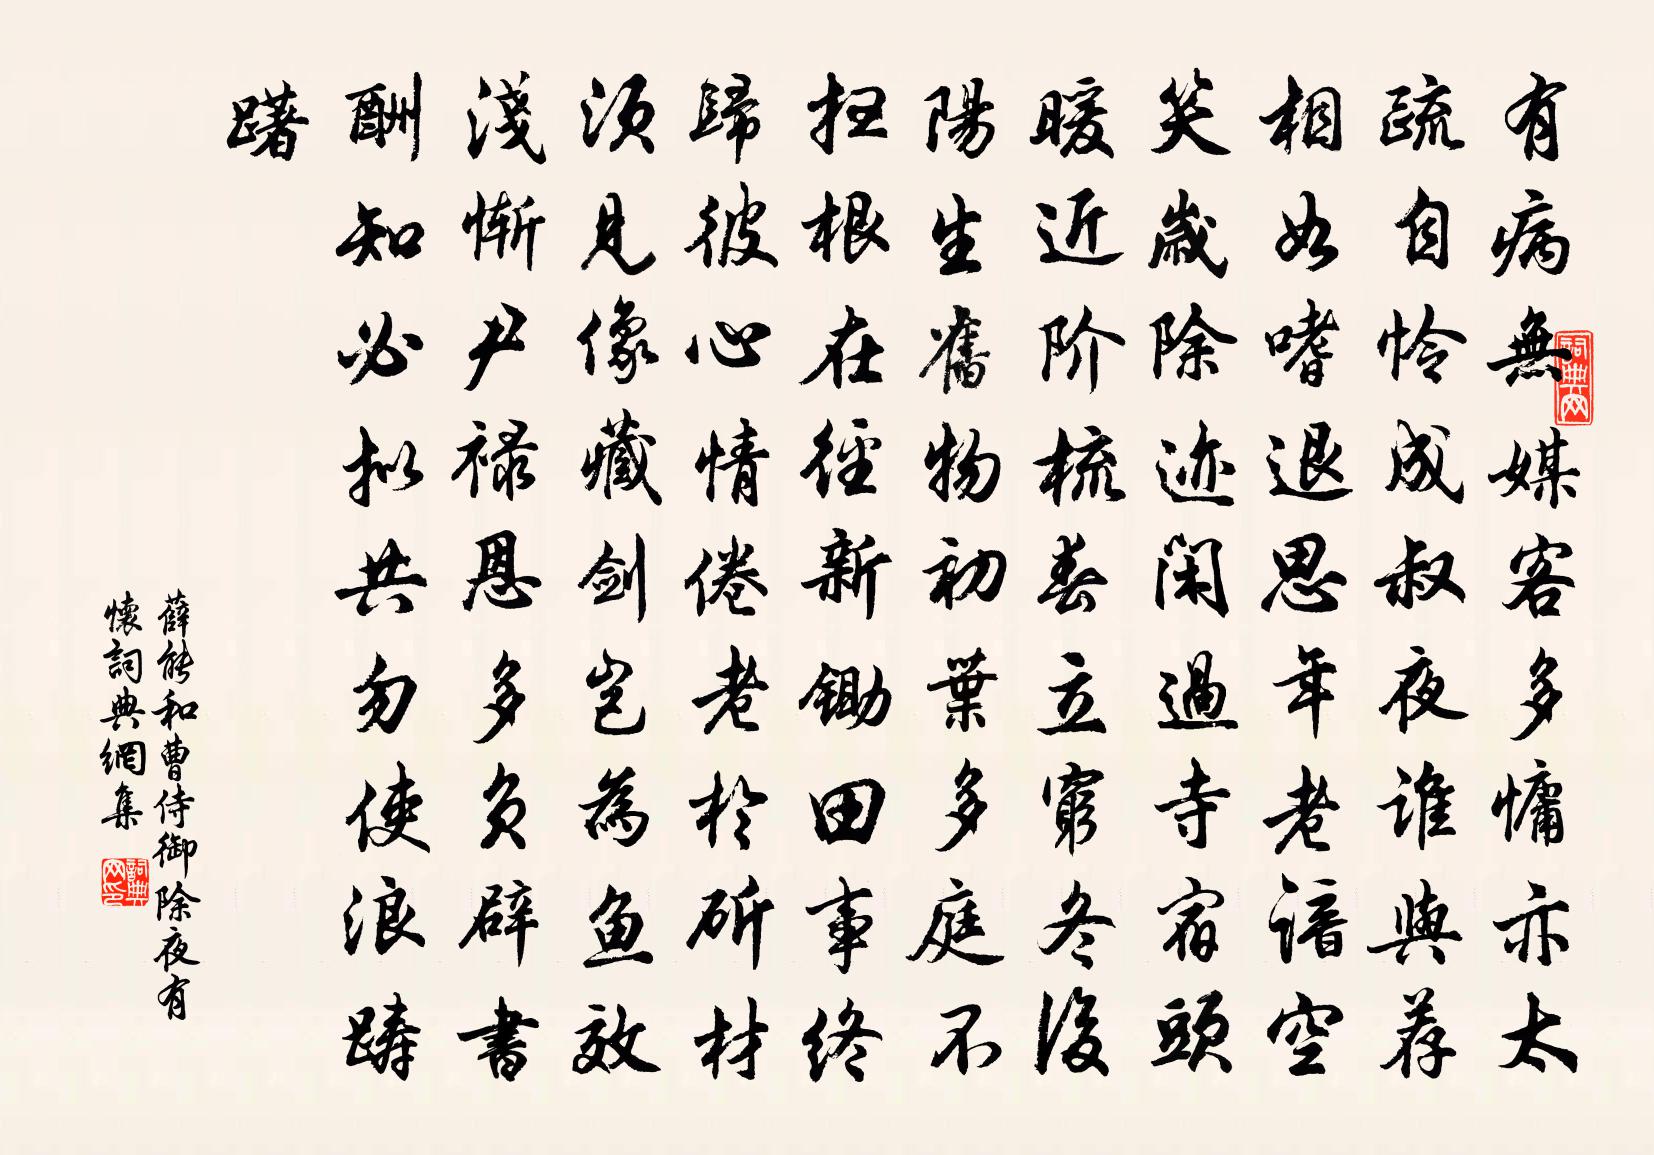 有病無媒客多慵亦太
疏自怜成叔夜谁與荐
相如嗜退思年老谙空
笑歲除迹闲過寺宿頭
暖近阶梳春立窮冬後
陽生舊物初葉多庭不
扫根在徑新锄田事终
歸彼心情倦老於斫材
须見像藏剑岂為鱼效
淺惭尹禄恩多负辟書
酬知必拟共勿使浪踌
躇
薛能和曹侍御除夜有
懷詞典網集
詞典网
詞典网印